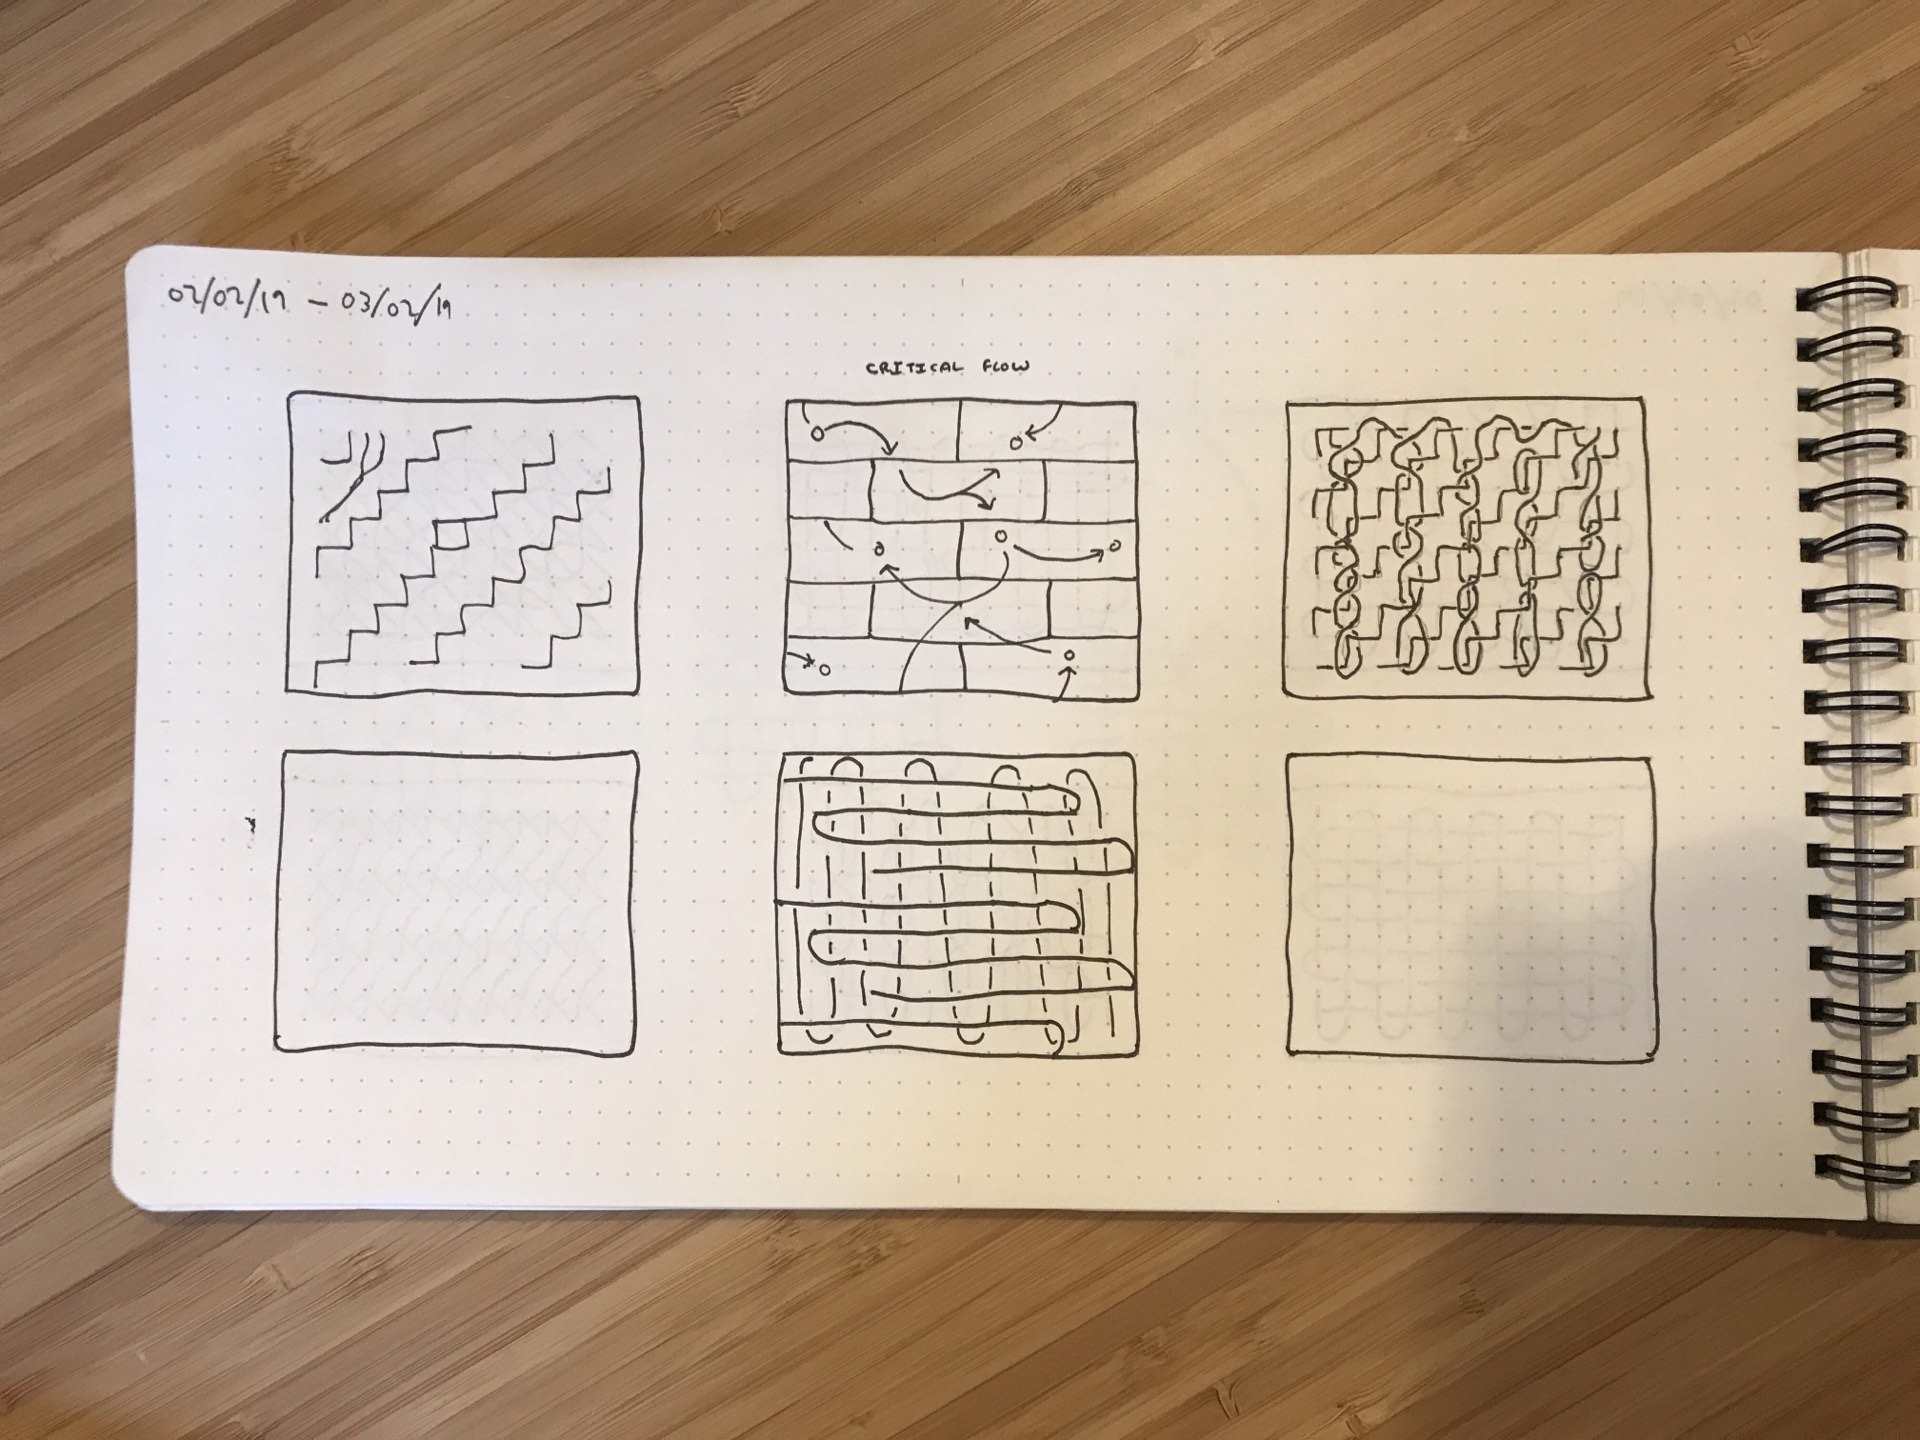 02/02/19 – 03/02/19
CRITICAL FLOW